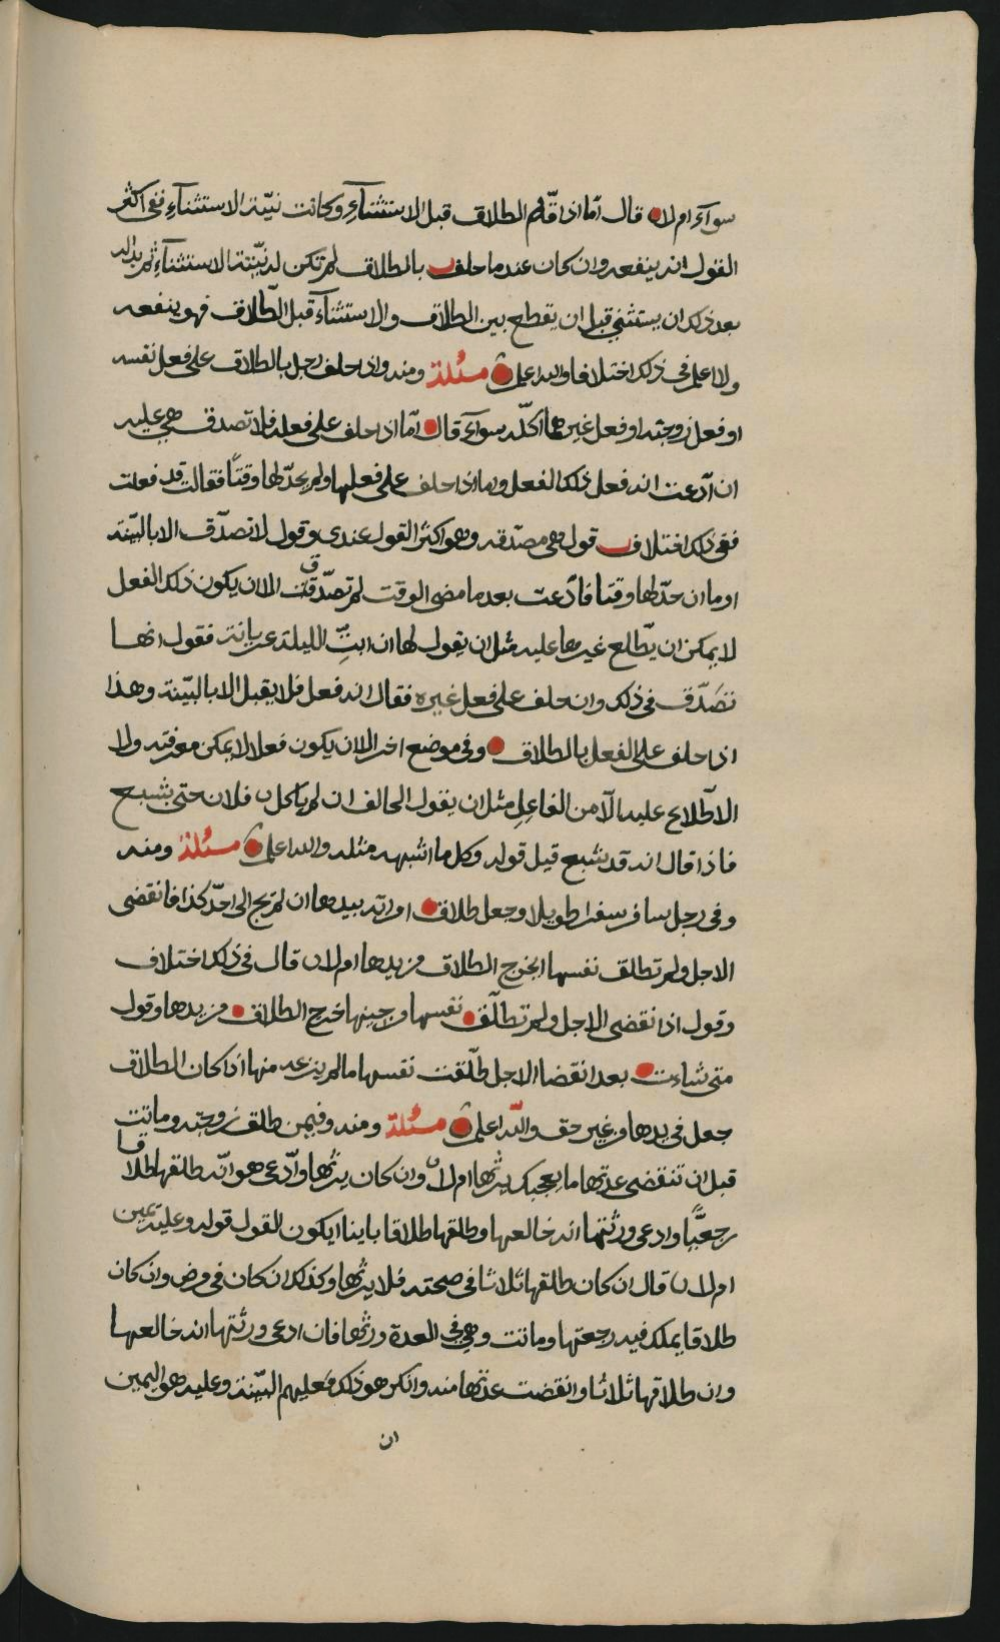 سوآء ام لا قال امّا اذا قدّم الطلاق قبل الاستثنآء وكانت نيّة الاستثنآء ففى اكثر
القول انه ينفعه وان كان عند ما حلف بالطلاق لم تكن له نيّة الاستثنآء ثم بدا له
بعد ذلك ان يستثني قبل ان يقطع بين الطلاق والاستثنآء قبل الطّلاق فهو ينفعه
ولا اعلم فى ذلك اختلافا والله اعلم مسئلة ومنه واذا حلف رجل بالطلاق على فعل نفسه
او فعل زوجته او فعل غيرهما أكلّه سوآء قال امّا اذا حلف على فعله فلا تصدق هي عليه
ان ادّعت انه فعل ذلك الفعل وما اذا حلف على فعلها ولم يحدّ لها وقتاً فقالت قد فعلت
ففى ذلك اختلاف قول هي مصدّقه وهو اكثر القول عندى وقول لا تصدّق الا بالبيّنة
اوما ان حدّ لها وقتا فادّعت بعد ما مضى الوقت لم تصدّق الا ان يكون ذلك الفعل
لا يمكن ان يطّلع غيرها عليه مثل ان يقول لها ان ابتِّ الليلة عريانة فقول انها
تصَدّق فى ذلك وان حلف على فعل غيره فقال انه فعل فلا يقبل الا بالبيّنة وهذا
اذا حلف على الفعل بالطلاق وفى موضع اخر الا ان يكون فعلا لا يمكن معرفته ولا
الاطّلاع عليه الّا من الفاعِلِ مثل ان يقول الحالف ان لم ياكل فلان حتى يشبع
فاذا قال انه قد شبع قبل قوله وكل ما اشبهه مثله والله اعلم مسئلة ومنه
وفى رجل سافر سفرا طويلا وجعل طلاق امراته بيدها ان لم يج الى احدّ كذا فانقضى
الاجل ولم تطلق نفسها ايخرج الطلاق من يدها ام لا قال فى ذلك اختلاف
وقول اذا نقضى الاجل ولم تطلّق نفسها من حينها خرج الطلاق من يدها وقول
متى شاءت بعد انقضا الاجل طلّقت نفسها ما لم ينزعه منها اذا كان الطلاق
جعل فى يدها من غير حق والله اعلم مسئلة ومنه وفيمن طلق زوجته وماتت
قبل ان تنقضى عدتها ما يعجبك يرثها ام لا وان كان يرثها وادّعى هو انّه طلقها طلاقا
رجعيّا وادعى ورثتها انه خالعها وطلقها طلاقا باينا ايكون القول قوله وعليه يمين
ام لا قال ان كان طلقها ثلاثا فى صحته فلا يرثها وكذلك ان كان فى مرض وان كان
طلاقا يملك فيه رجعتها وماتت وهي فى العدة ورثها فان ادعى ورثتها انه خالعها
وان طلاقها ثلاثا وانقضت عدتها منه وانكر هو ذلك فعليهم البيّنة وعليه هو اليمين
ان